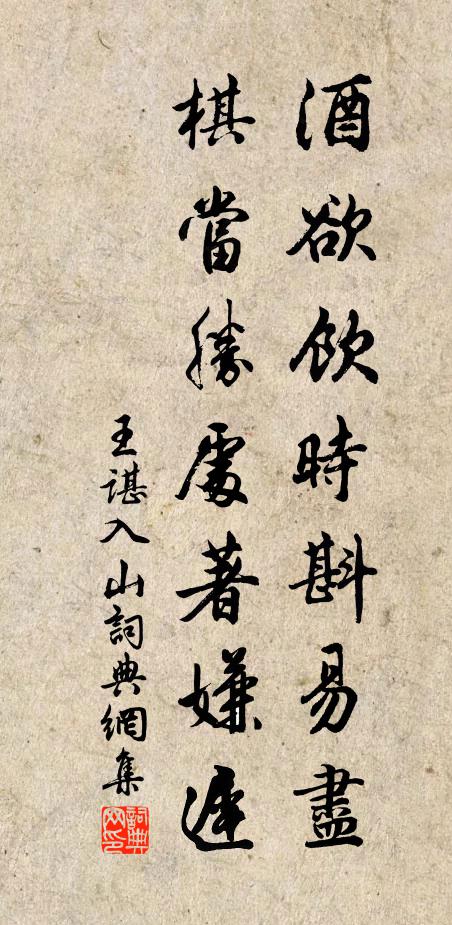 酒欲飲時斟易盡
棋當勝處著嫌遲
王諶入山詞典網集
詞典網印